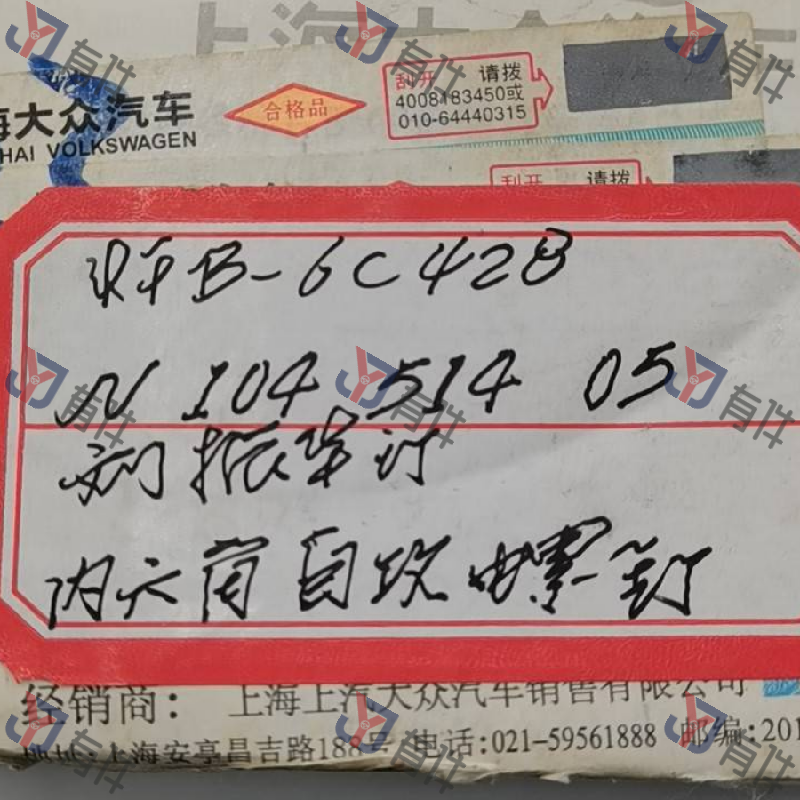 海大众汽车
HAI VOLKSWAGEN
合格品
刮开 请拨
4008183450或
010-64440315
刮开 请拨
B-6C428
N 104 514 05
内六角自攻螺钉
经销商: 上海上汽大众汽车销售有限公司
地址:上海安亭昌吉路188号 电话:021-59561888 邮编:201
有件